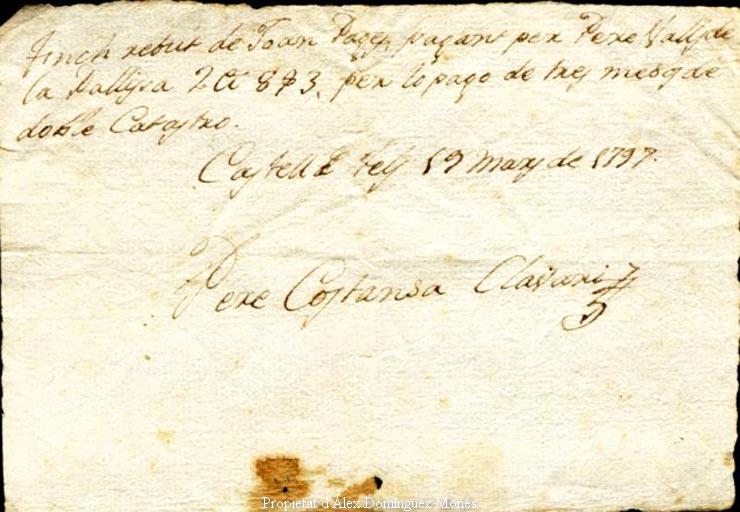 Tinch rebut de Joan Pages, pagant per Pere Valls de
la Pallisa 2 ₶ 8 ß 3, per lo pago de tres mesos de
doble Catastro.
Castell de Fels 19 Mars de 1797.
Pere Costansa Clavari
Propietat d'Alex Domínguez Monés